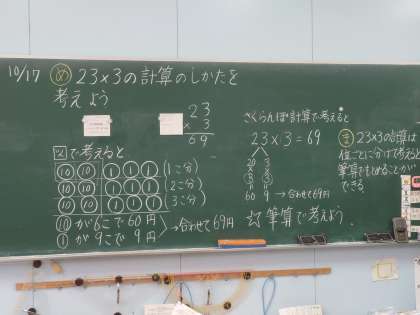 10/17 め 23×3の計算のしかたを
考えよう
図で考えると
10 10 1 1 1 (1こ分)
10 10 1 1 1 (2こ分)
10 10 1 1 1 (3こ分)
10が6こで60円
1が9こで9円
→合わせて69円
23
× 3
69
さくらんぼ計算で考えると
23×3=69
20 3
× ×
3 3
60 9 →合わせて69円
☆筆算で考えよう
23×3の計算は
位ごとに分けて考えると
筆算でもとめることが
できる